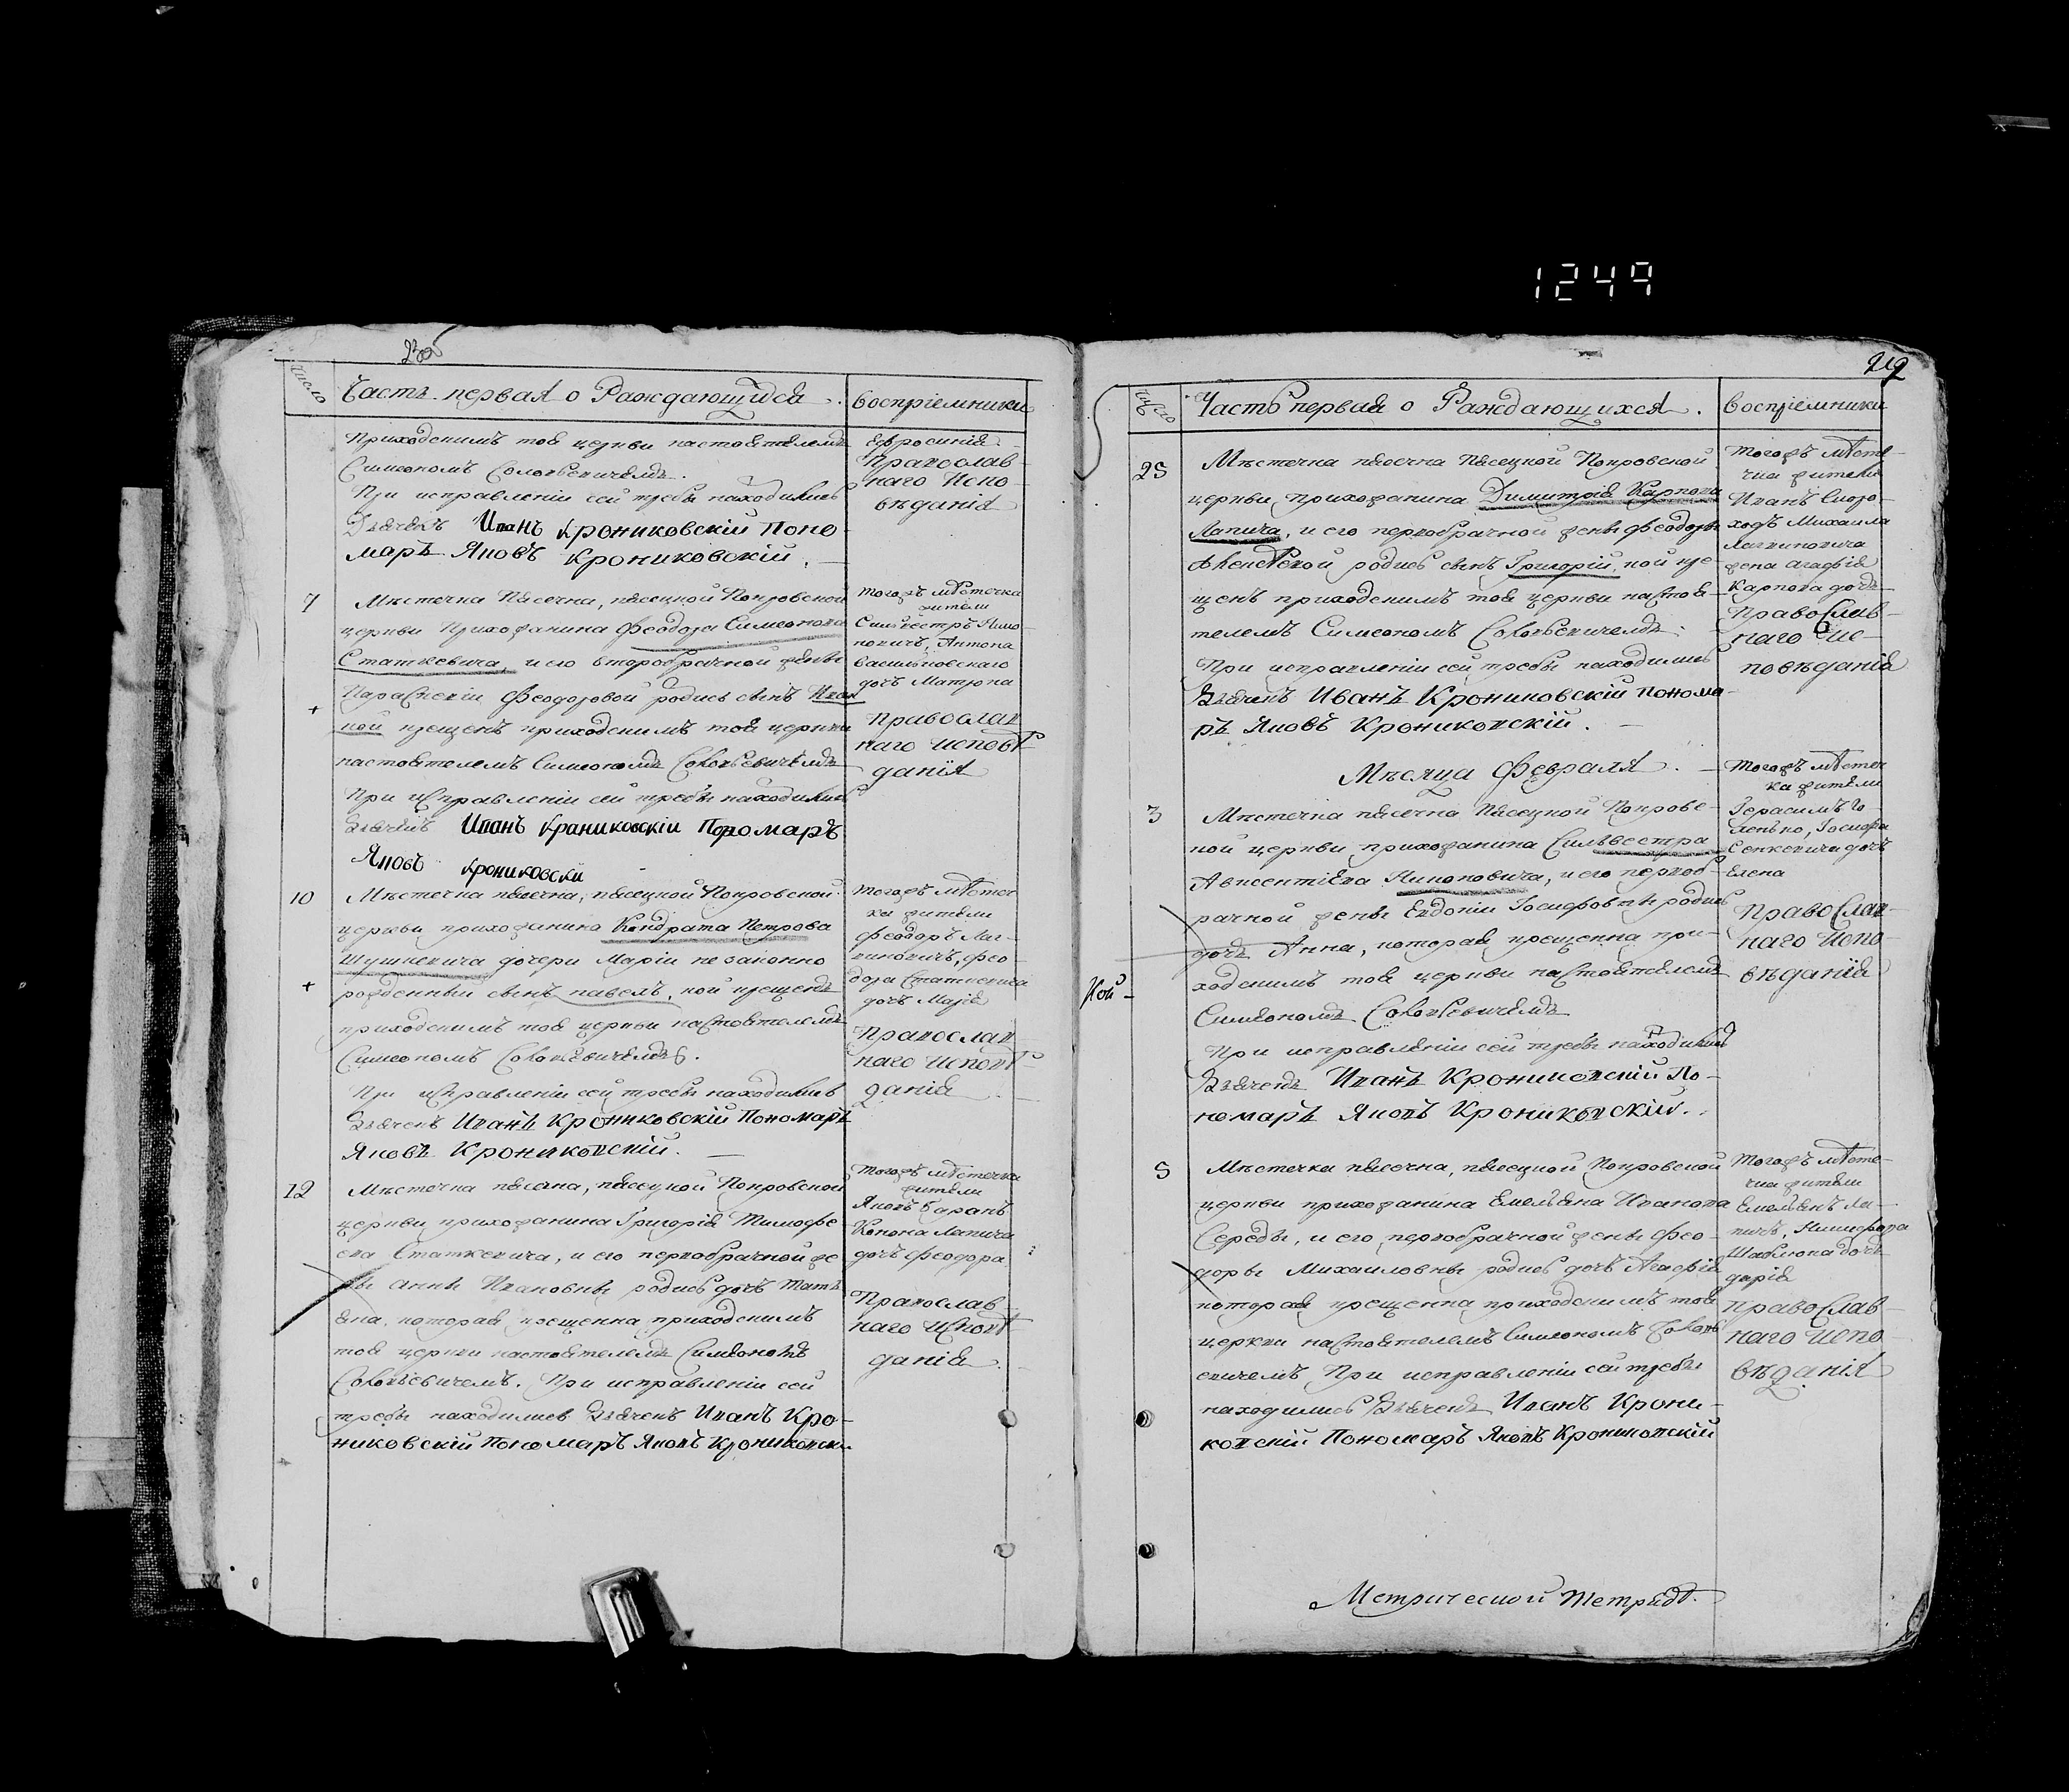 1249
Число
Часть первая о Раждающихся
Воспріемники
Приходскимъ той церкви настоятелемъ
Симеономъ Соловьевичемъ.
При исправленіи сей требы находились
Дьячекъ Иванъ Крониковскій Поно-
маръ Яковъ Крониковскій.
Ефросинія
Православ-
наго Испо-
вѣданія
7
Мѣстечка Пѣсечна, пѣсецкой Покровской
церкви Прихожанина Феодора Симеонова
Статкевича, и его второбрачной жены
Параскевіи Феодоровой родись сынъ Иван
кой крещенъ приходскимъ той церкви
настоятелемъ Симеономъ Соловьевичемъ
При исправленіи сей требы находились
Дьячекъ Иванъ Краниковскіи Пономаръ
Яковъ Крониковски
тогожъ мѣстечка
жители
Антона
Васильковскаго
дочь Матрона
Православ
наго исповѣ
данія
10
Мѣстечка пѣсечна, пѣсецкой Покровской
церкви прихожанина Кондрата Петрова
Шушкевича дочери Маріи не законно
рожденный сынъ павелъ, кой крещенъ
приходскимъ той церкви настоятелемъ
Симеономъ Соловьевичемъ.
При исправленіи сей требы находились
Дьячекъ Иванъ Крониковскій Пономаръ
Яковъ Крониковскій.
тогожъ мѣстеч
ка жители
Феодоръ Лаг-
виновичъ, Фео-
дора Статкевича
дочь Марія
Православ
наго исповѣ
данія
12
Мѣстечка пѣсечна, пѣсецкой Покровской
церкви, прихожанина Григорія Тимофѣ
ева Статкевича, и его первобрачной же
ны Анны Ивановны родись дочь Тать
яна, которая крещенна приходскимъ
той церкви настоятелемъ Симеономъ
Соловьевичемъ. При исправленіи сей
требы находились Дьячекъ Иванъ Кро-
никовскій Пономаръ Яковъ Крониковски
тогожъ мѣстечка
жители
Яковъ Баранъ
Конона Лапича
дочь Феодора
Православ
наго исповѣ
данія
212
Число
Часть первая о Раждающихся.
Воспріемники
25
Мѣстечка пѣсечна Пѣсецкой Покровской
церкви, прихожанина Димитрія Карпова
Лапича, и его первобрачной жены Феодоры
родись сынъ Григорій, кой кре-
щенъ приходскимъ той церкви настоя-
телемъ Симеономъ Соловьевичемъ.
При исправленіи сей требы находились
Дьячекъ Иванъ Крониковскій Понома-
ръ Яковъ Крониковскій.
тогожъ мѣсте-
чка жители
Иванъ Скоро-
ходъ Михаила
Лагвиновича
жена Агафія
Карпова дочь
Православ-
наго ис-
повѣданія
Мѣсяца Февраля.
3
Мѣстечка пѣсечна Пѣсецкой Покровс-
кой церкви прихожанина Сильвестра
Авксентіева Якимовича, и его первоб-
рачной жены Евдокіи Іосифовны родись
дочь Анна, которая крещенна при-
ходскимъ той церкви настоятелемъ
Симеономъ Соловьевичемъ
При исправленіи сей требы находились
Дьячекъ Иванъ Крониковскій По-
номаръ Яковъ Крониковскій.
Кой
Тогожъ мѣстеч
ка жители
Герасимъ
Іосифа
Сенкевича дочь
Елена
Православ-
наго Испо-
вѣданія
5
Мѣстечка пѣсечна, пѣсецкой Покровской
церкви прихожанина Емельяна Иванова
Середы, и его первобрачной жены Фео-
доры Михаиловны родись дочь Агафія
которая крещенна приходскимъ той
церкви настоятелемъ Симеономъ Соловь
евичемъ При исправленіи сей требы
находились Дьячекъ Иванъ Крони-
ковскій Пономаръ Яковъ Крониковскій
Тогожъ мѣсте-
чка жители
Емельянъ Ла-
пичъ, Никифора
дочь
Дарія
Православ
наго испо
вѣданія
Метрической Тетради.